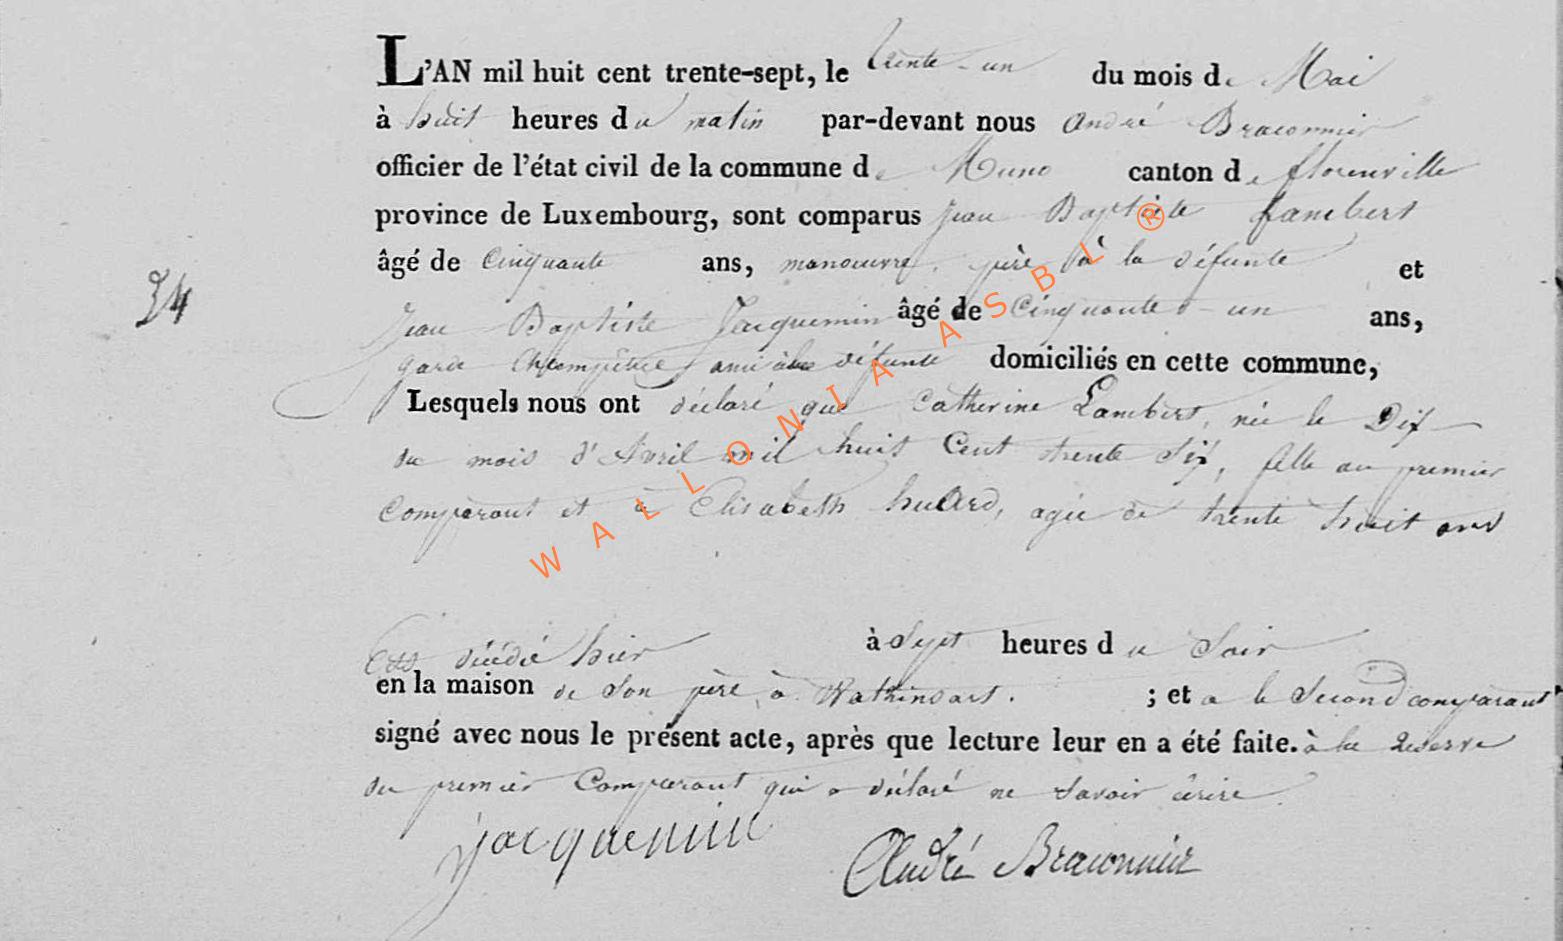 L'AN mil huit cent trente-sept, le trente-un du mois de Mai
à huit heures du matin par-devant nous André Braconnier
officier de l'état civil de la commune de Muno canton de florenville
province de Luxembourg, sont comparus Jean Baptiste Lambert
âgé de Cinquante ans, manœuvre, père à la défunte et
34
Jean Baptiste Jacquemin âgé de Cinquante-un ans,
garde Champêtre ami à la défunte domiciliés en cette commune,
Lesquels nous ont déclaré que Catherine Lambert, née le Dix
du mois d'Avril mil huit Cent trente Six, fille au premier
Comparant et à Elisabeth huard, agée de trente huit ans
Est décédé hier à Sept heures du Soir
en la maison de Son père, à Wathinsart. ; et a le Second comparant
signé avec nous le présent acte, après que lecture leur en a été faite. à la reserve
du premier Comparant qui a déclaré ne Savoir écrire.
Jacquemin
André Braconnier
WALLONIA ASBL ®